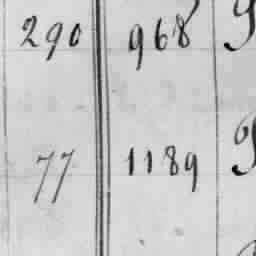 290 968
77 1189